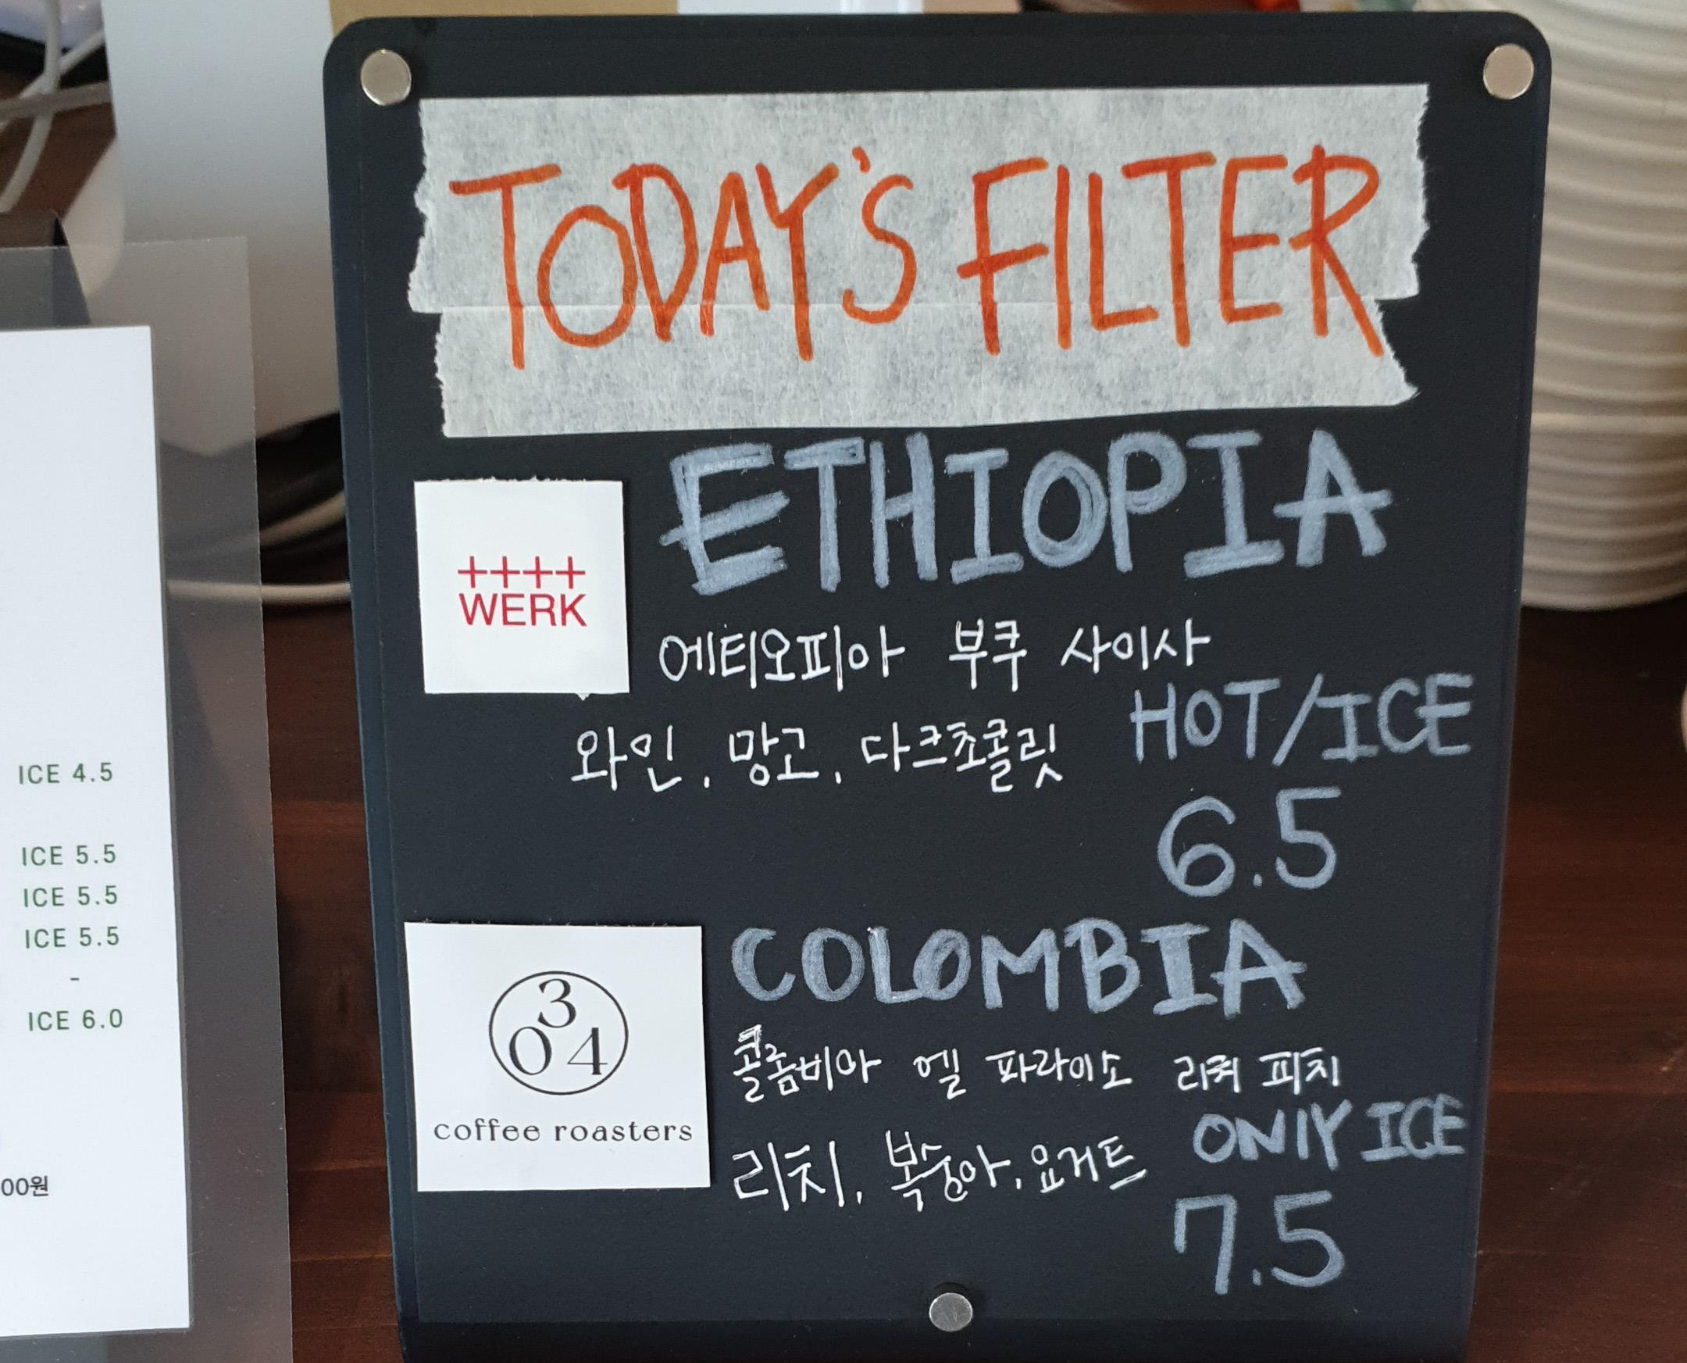 TODAY'S FILTER
ETHIOPIA
++++
WERK
에티오피아 부쿠 사이사
와인, 망고, 다크초콜릿
HOT/ICE
6.5
COLOMBIA
034
coffee roasters
콜롬비아 엘 파라이소 리치 피치
리치, 복숭아, 요거트
ONlY ICE
7.5
ICE 4.5
ICE 5.5
ICE 5.5
ICE 5.5
-
ICE 6.0
00원